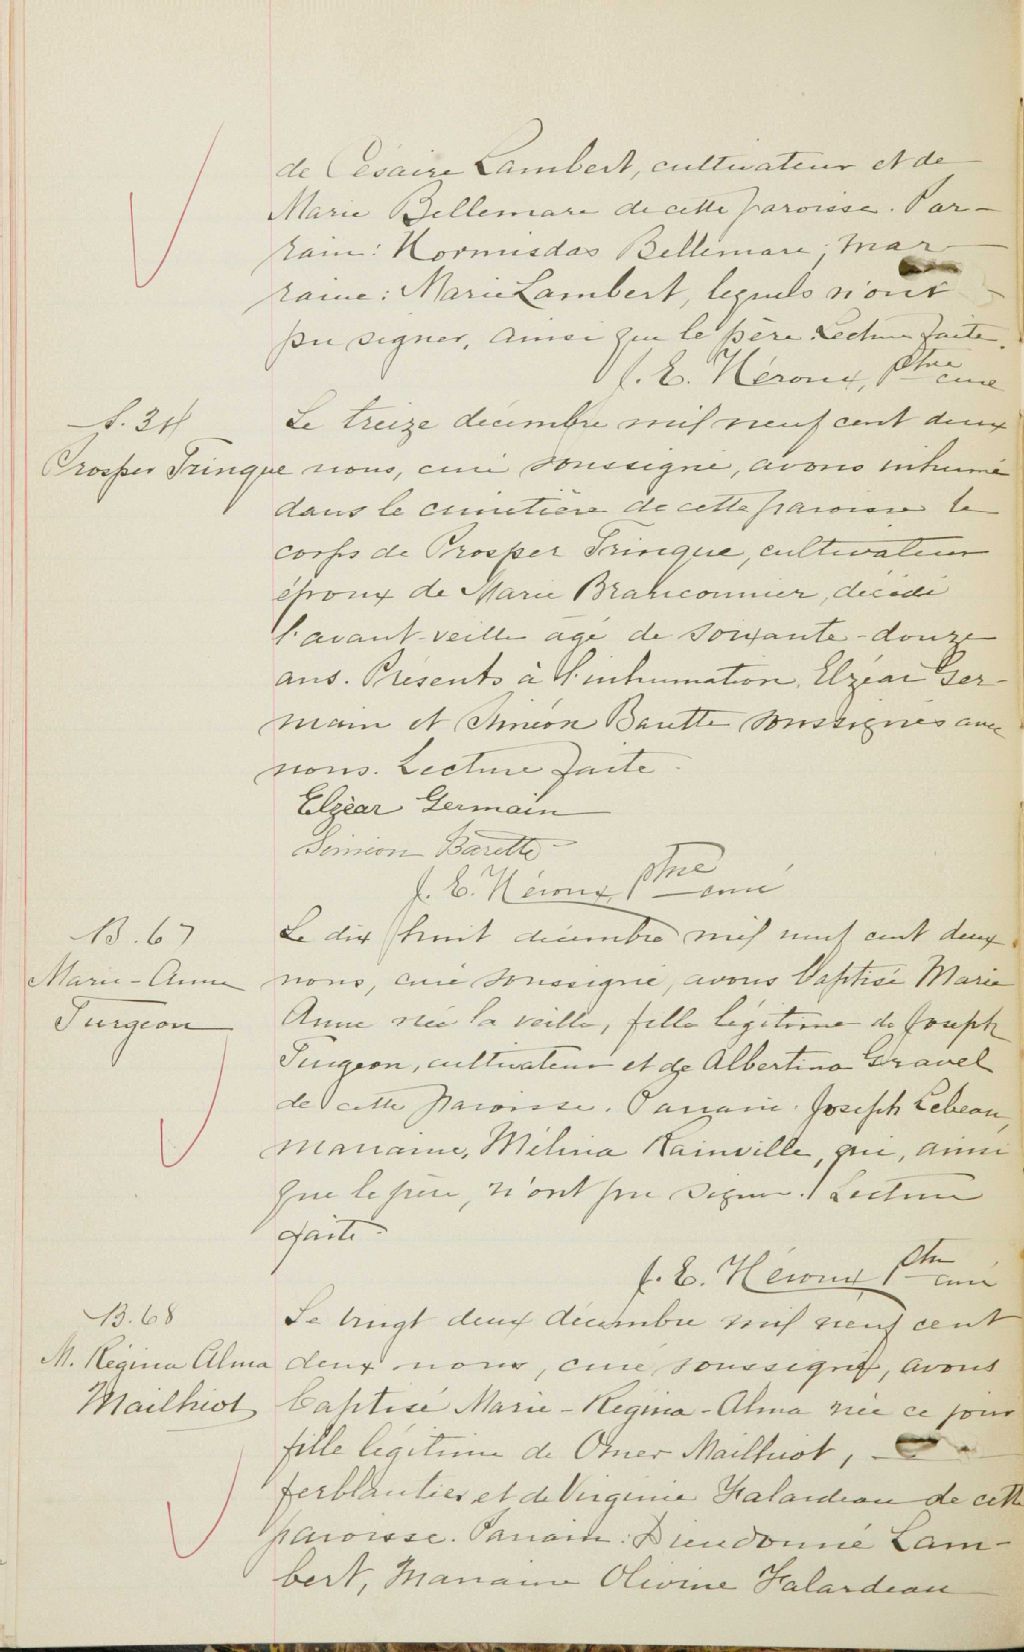 de Césaire Lambert, cultivateur et de
Marie Bellemare de cette paroisse. Par-
rain: Hormisdas Bellemare; mar-
raine: Marie Lambert, lequels n'ont
pu signer, ainsi que le père. Lecture faite.
J. E. Héroux, Ptre curé
S. 34
Prosper Trinque
Le treize décembre mil neuf cent deux
nous, curé soussigné, avons inhumé
dans le cimetière de cette paroisse le
corps de Prosper Trinque, cultivateur
époux de Marie Branconnier, décédé
l'avant-veille âgé de soixante-douze
ans. Présents à l'inhumation, Elzéar Ger-
main et Siméon Barette soussignés avec
nous. Lecture faite.
Elzéar Germain
Siméon Barette
J. E. Héroux, Ptre curé
B. 67
Marie-Anne
Turgeon
Le dix huit décembre mil neuf cent deux
nous, curé soussigné, avons baptisé Marie
Anne née la veille, fille légitime de Joseph
Turgeon, cultivateur et de Albertina Gravel
de cette paroisse. Parrain: Joseph Lebeau,
marraine, Mélina Rainville, qui, ainsi
que le père, n'ont pu signer. Lecture
faite.
J. E. Héroux, Ptre curé
B. 68
M. Régina Alma
Mailhiot
Le vingt deux décembre mil neuf cent
deux nous, curé soussigné, avons
baptisé Marie-Régina-Alma née ce jour
fille légitime de Omer Mailhiot,
ferblantier et de Virginie Falardeau de cette
paroisse. Parrain: Dieudonné Lam-
bert, Marraine Olivine Falardeau